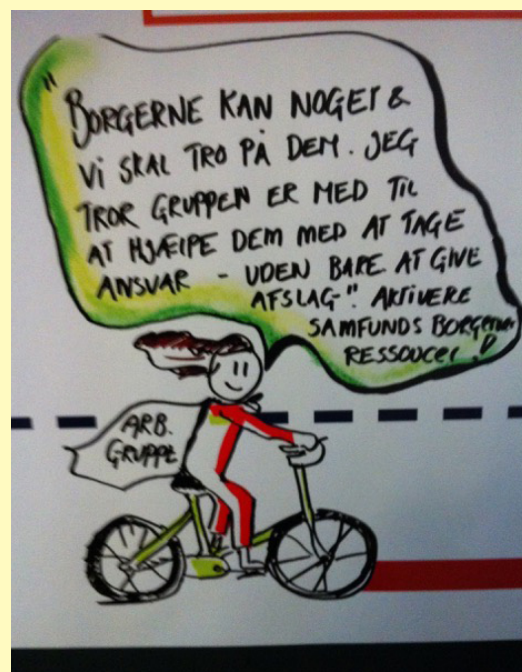 "BORGERNE KAN NOGET &
Vi SKAL TRO PÅ DEM. JEG
TROR GRUPPEN ER MED TIL
AT HJÆLPE DEM MED AT TAGE
ANSVAR - UDEN BARE AT GIVE
AFSLAG-". AKTIVERE
SAMFUNDS BORGernes
RESSOUCer!
ARB.
GRUPPE